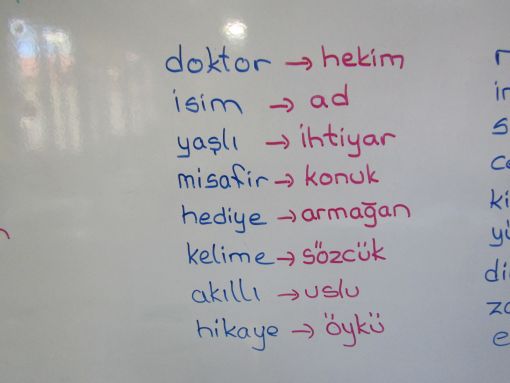 doktor → hekim
isim → ad
yaşlı → ihtiyar
misafir → konuk
hediye → armağan
kelime → sözcük
akıllı → uslu
hikaye → öykü